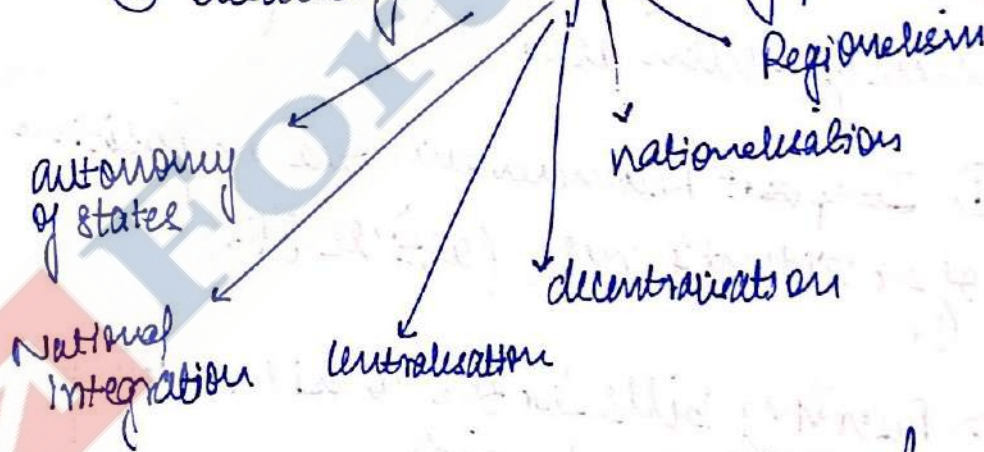 Regionalism
nationalisation
autonomy
of states
decentralisation
National
integration
Centralisation